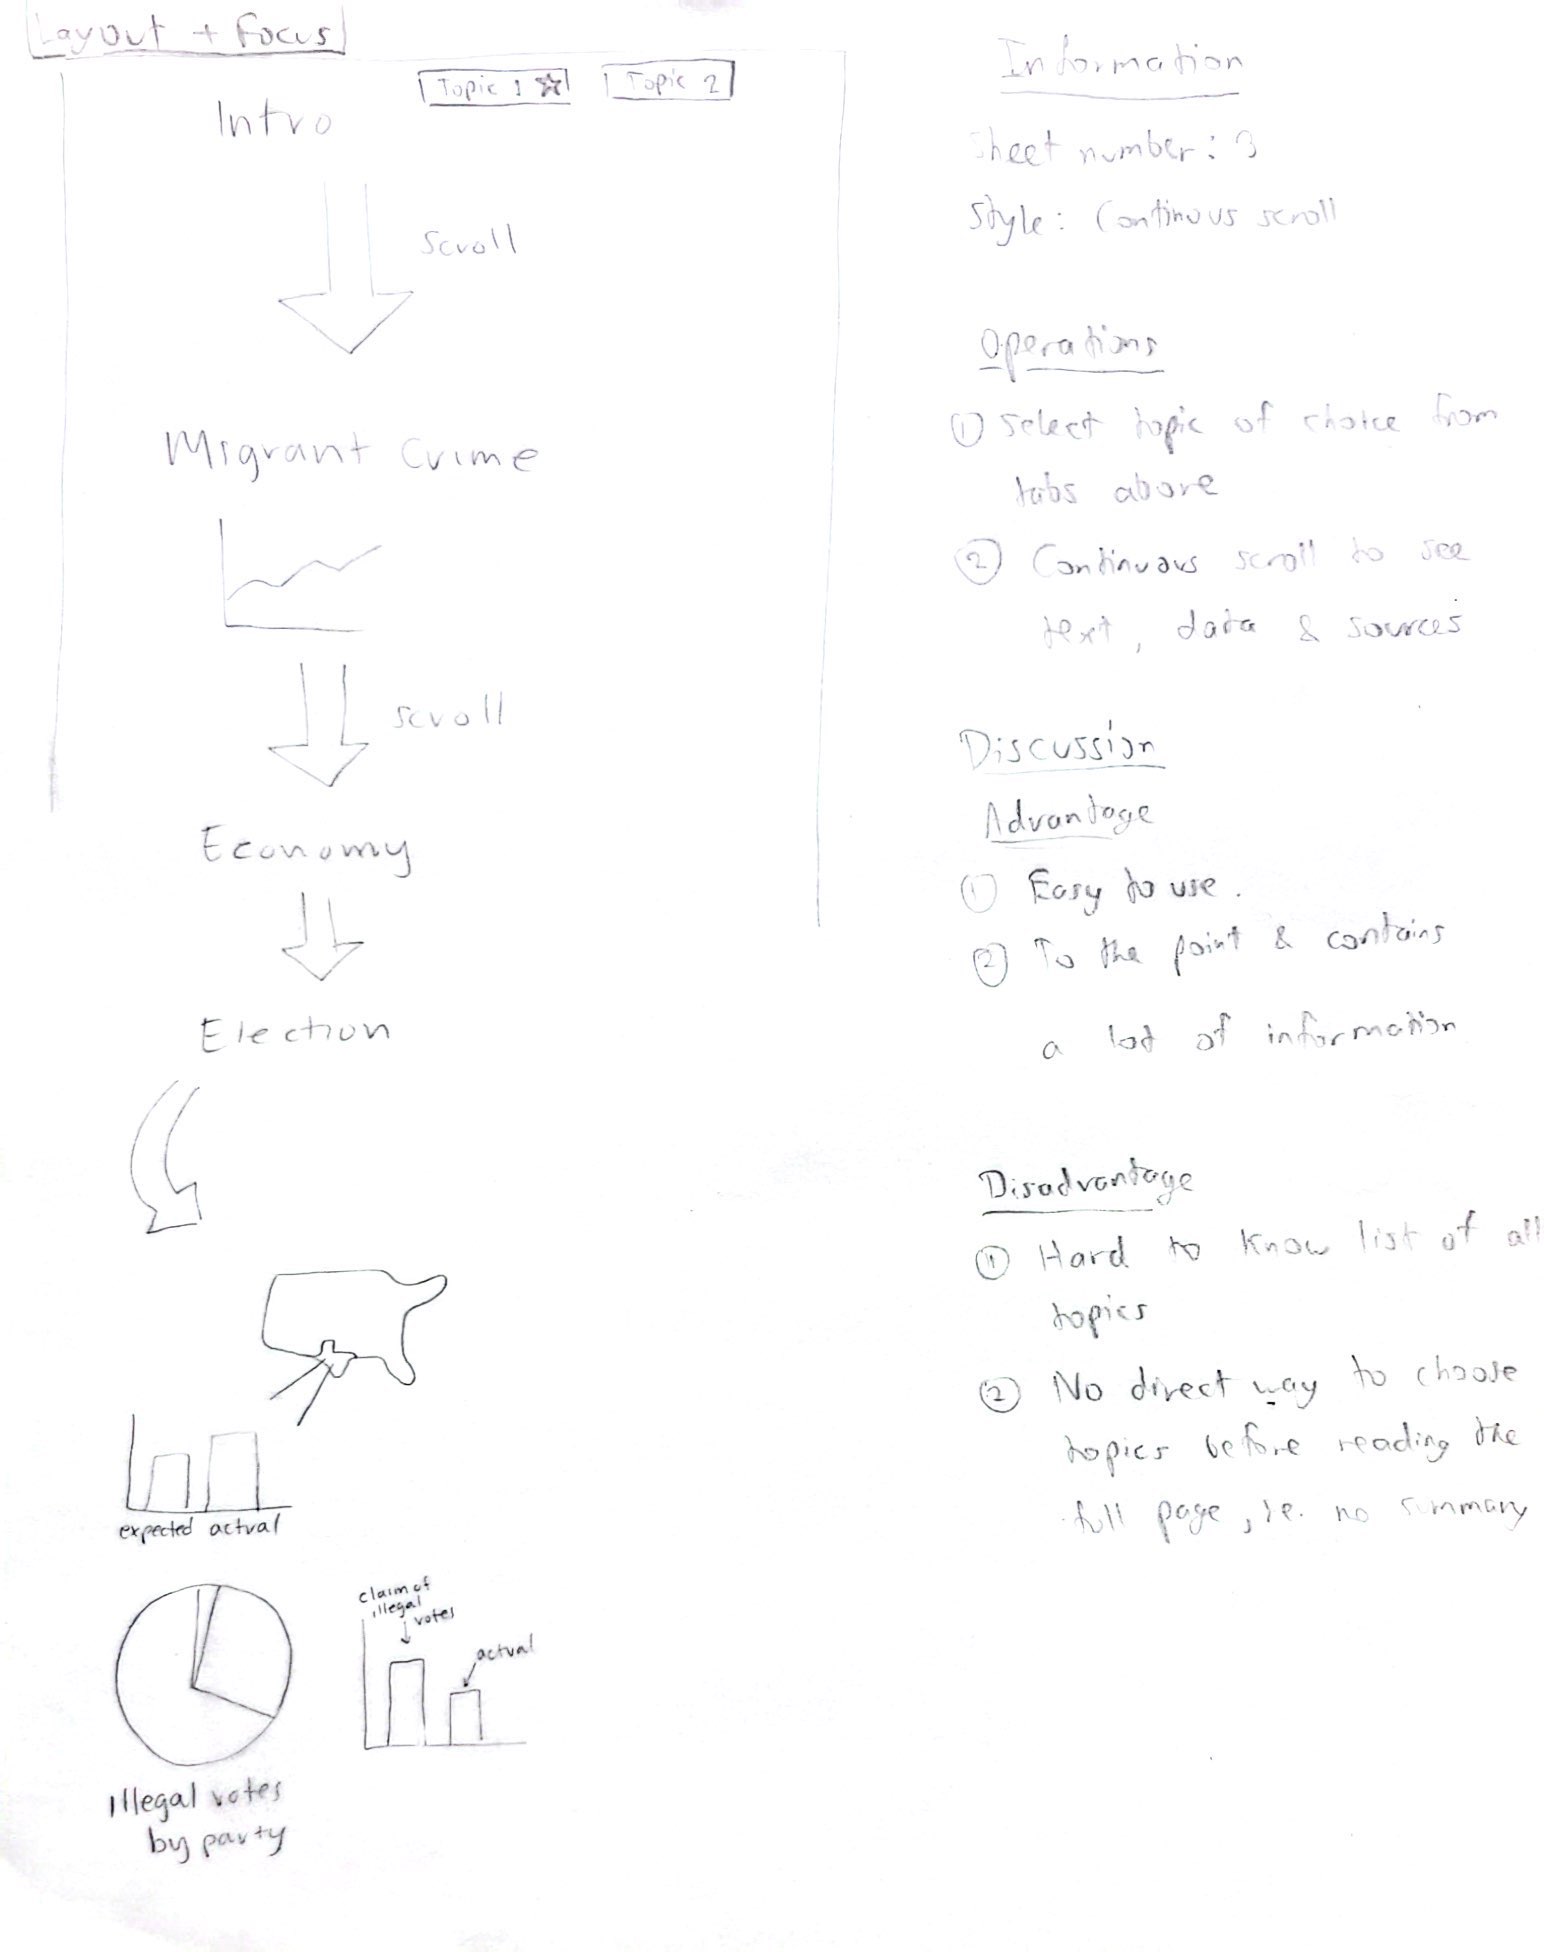 Layout + Focus
Topic 1
Topic 2
Intro
scroll
Migrant Crime
scroll
Economy
Election
expected actual
claim of
illegal
votes
actual
Illegal votes
by party
Information
Sheet number: 3
Style: Continous scroll
Operations
① Select topic of choice from
tabs above
② Continuous scroll to see
text, data & sources
Discussion
Advantage
① Easy to use.
② To the point & contains
a lot of information
Disadvantage
① Hard to know list of all
topics
② No direct way to choose
topics before reading the
full page, i.e. no summary